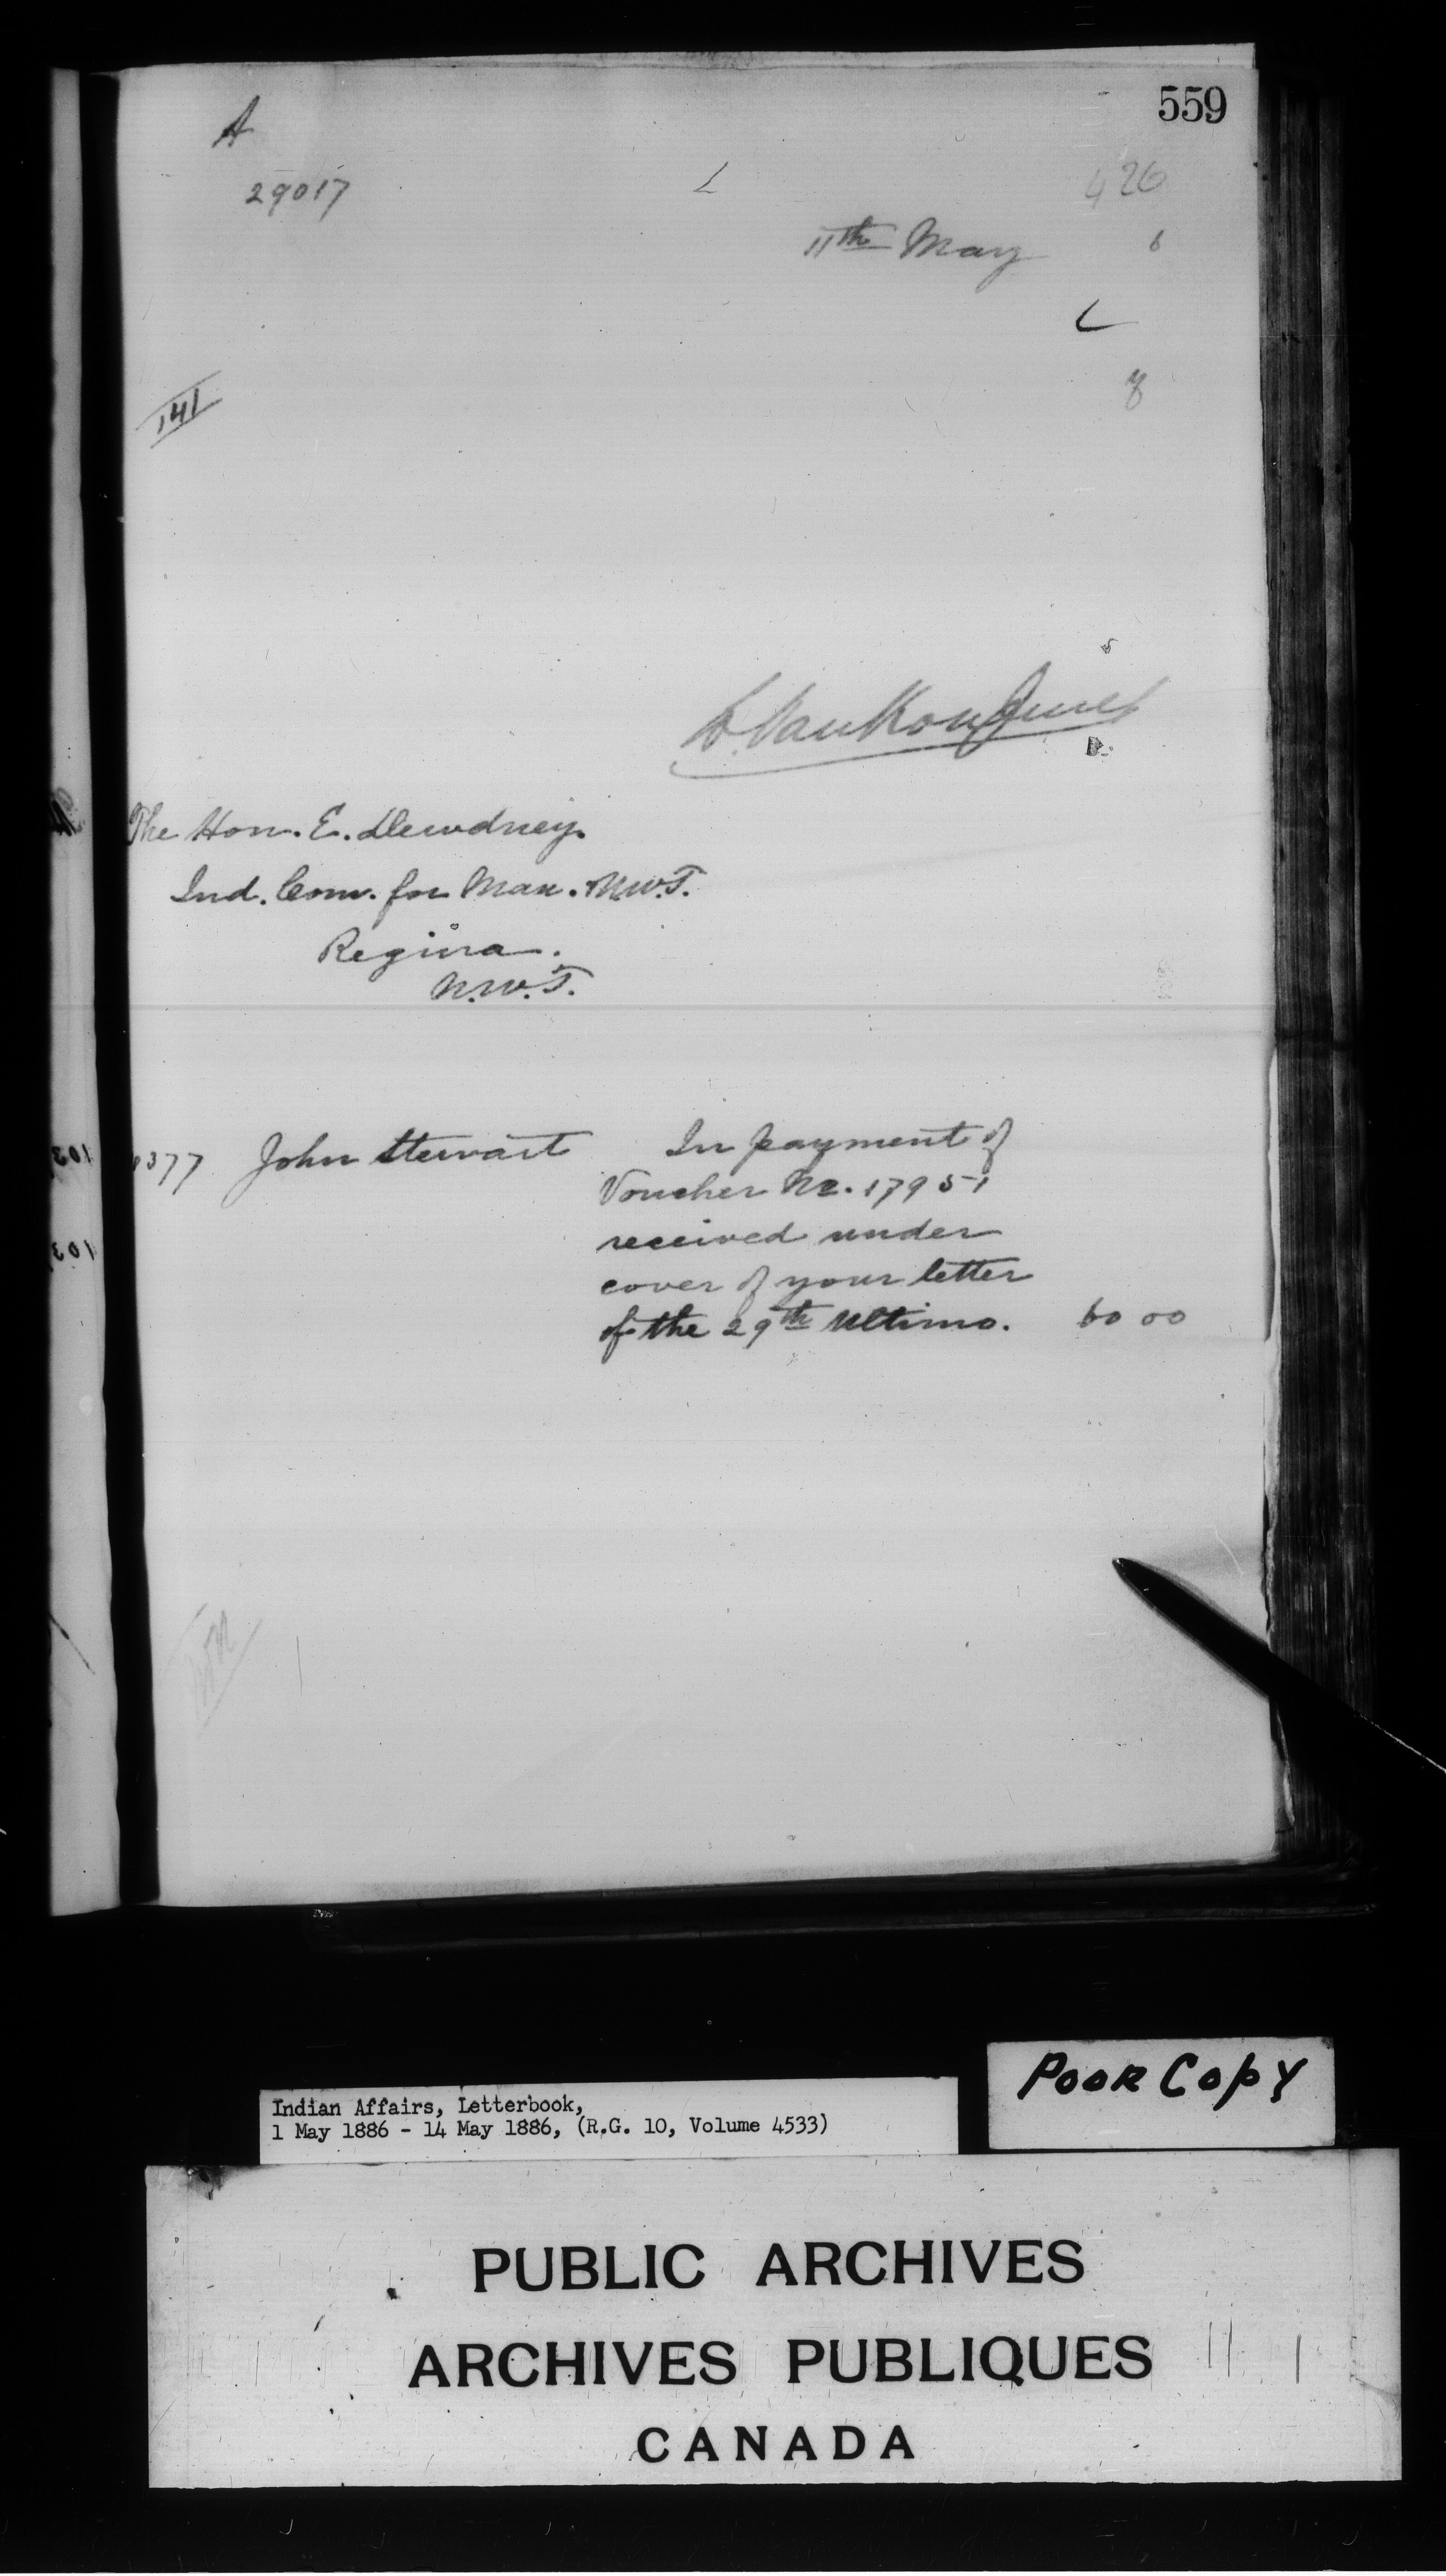 559
A
29017
426
11th May 6
141
L. VanKoughnet
The Hon. E. Dewdney.
Ind. Com. for Man. N.W.T.
Regina.
N.W.T.
377 John Stewart In payment of
Voucher No. 17951
received under
cover of your letter
of the 29th Ultimo. 60 00
Poor Copy
Indian Affairs, Letterbook,
1 May 1886 - 14 May 1886, (R.G. 10, Volume 4533)
PUBLIC ARCHIVES
ARCHIVES PUBLIQUES
CANADA